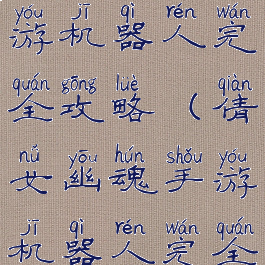 yóu jī qì rén wán
游机器人完
quán gōng lüè qiàn
全攻略（倩
nǚ yōu hún shǒu yóu
女幽魂手游
jī qì rén wán quán
机器人完全